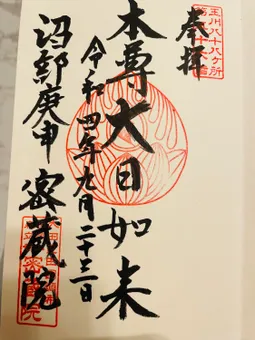 玉川八十八ヶ所
奉拝
本尊大日如来
令和四年九月二十三日
沼部庚申 密蔵院